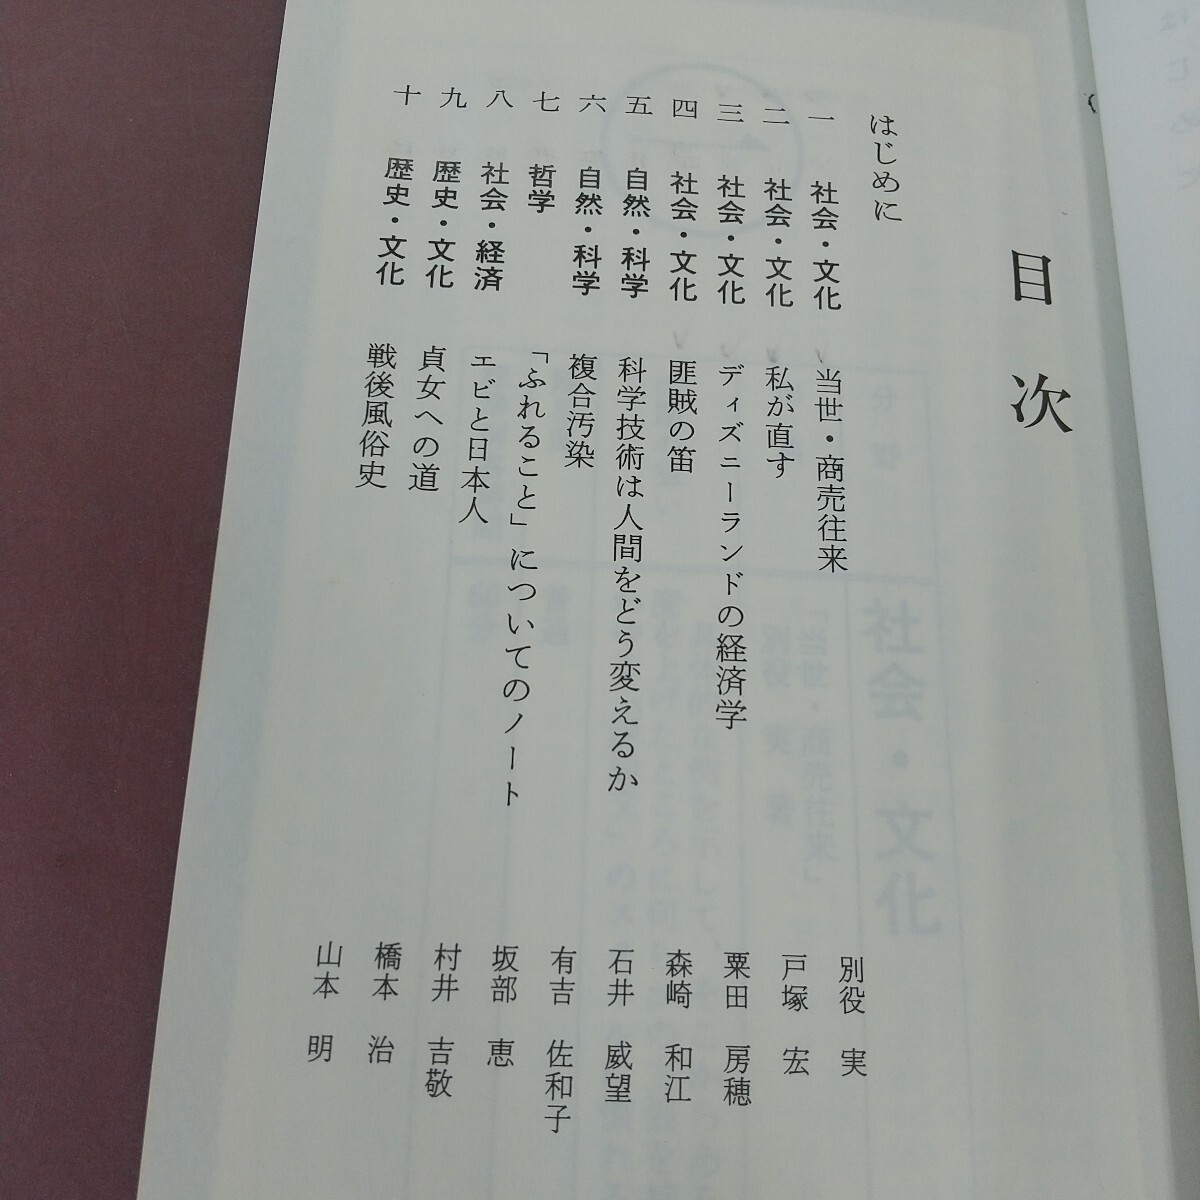 目次
はじめに
一 社会・文化 当世・商売往来 別役 実
二 社会・文化 私が直す 戸塚 宏
三 社会・文化 ディズニーランドの経済学 粟田 房穂
四 社会・文化 匪賊の笛 森崎 和江
五 自然・科学 科学技術は人間をどう変えるか 石井 威望
六 自然・科学 複合汚染 有吉 佐和子
七 哲学 「ふれること」についてのノート 坂部 恵
八 社会・経済 エビと日本人 村井 吉敬
九 歴史・文化 貞女への道 橋本 治
十 歴史・文化 戦後風俗史 山本 明